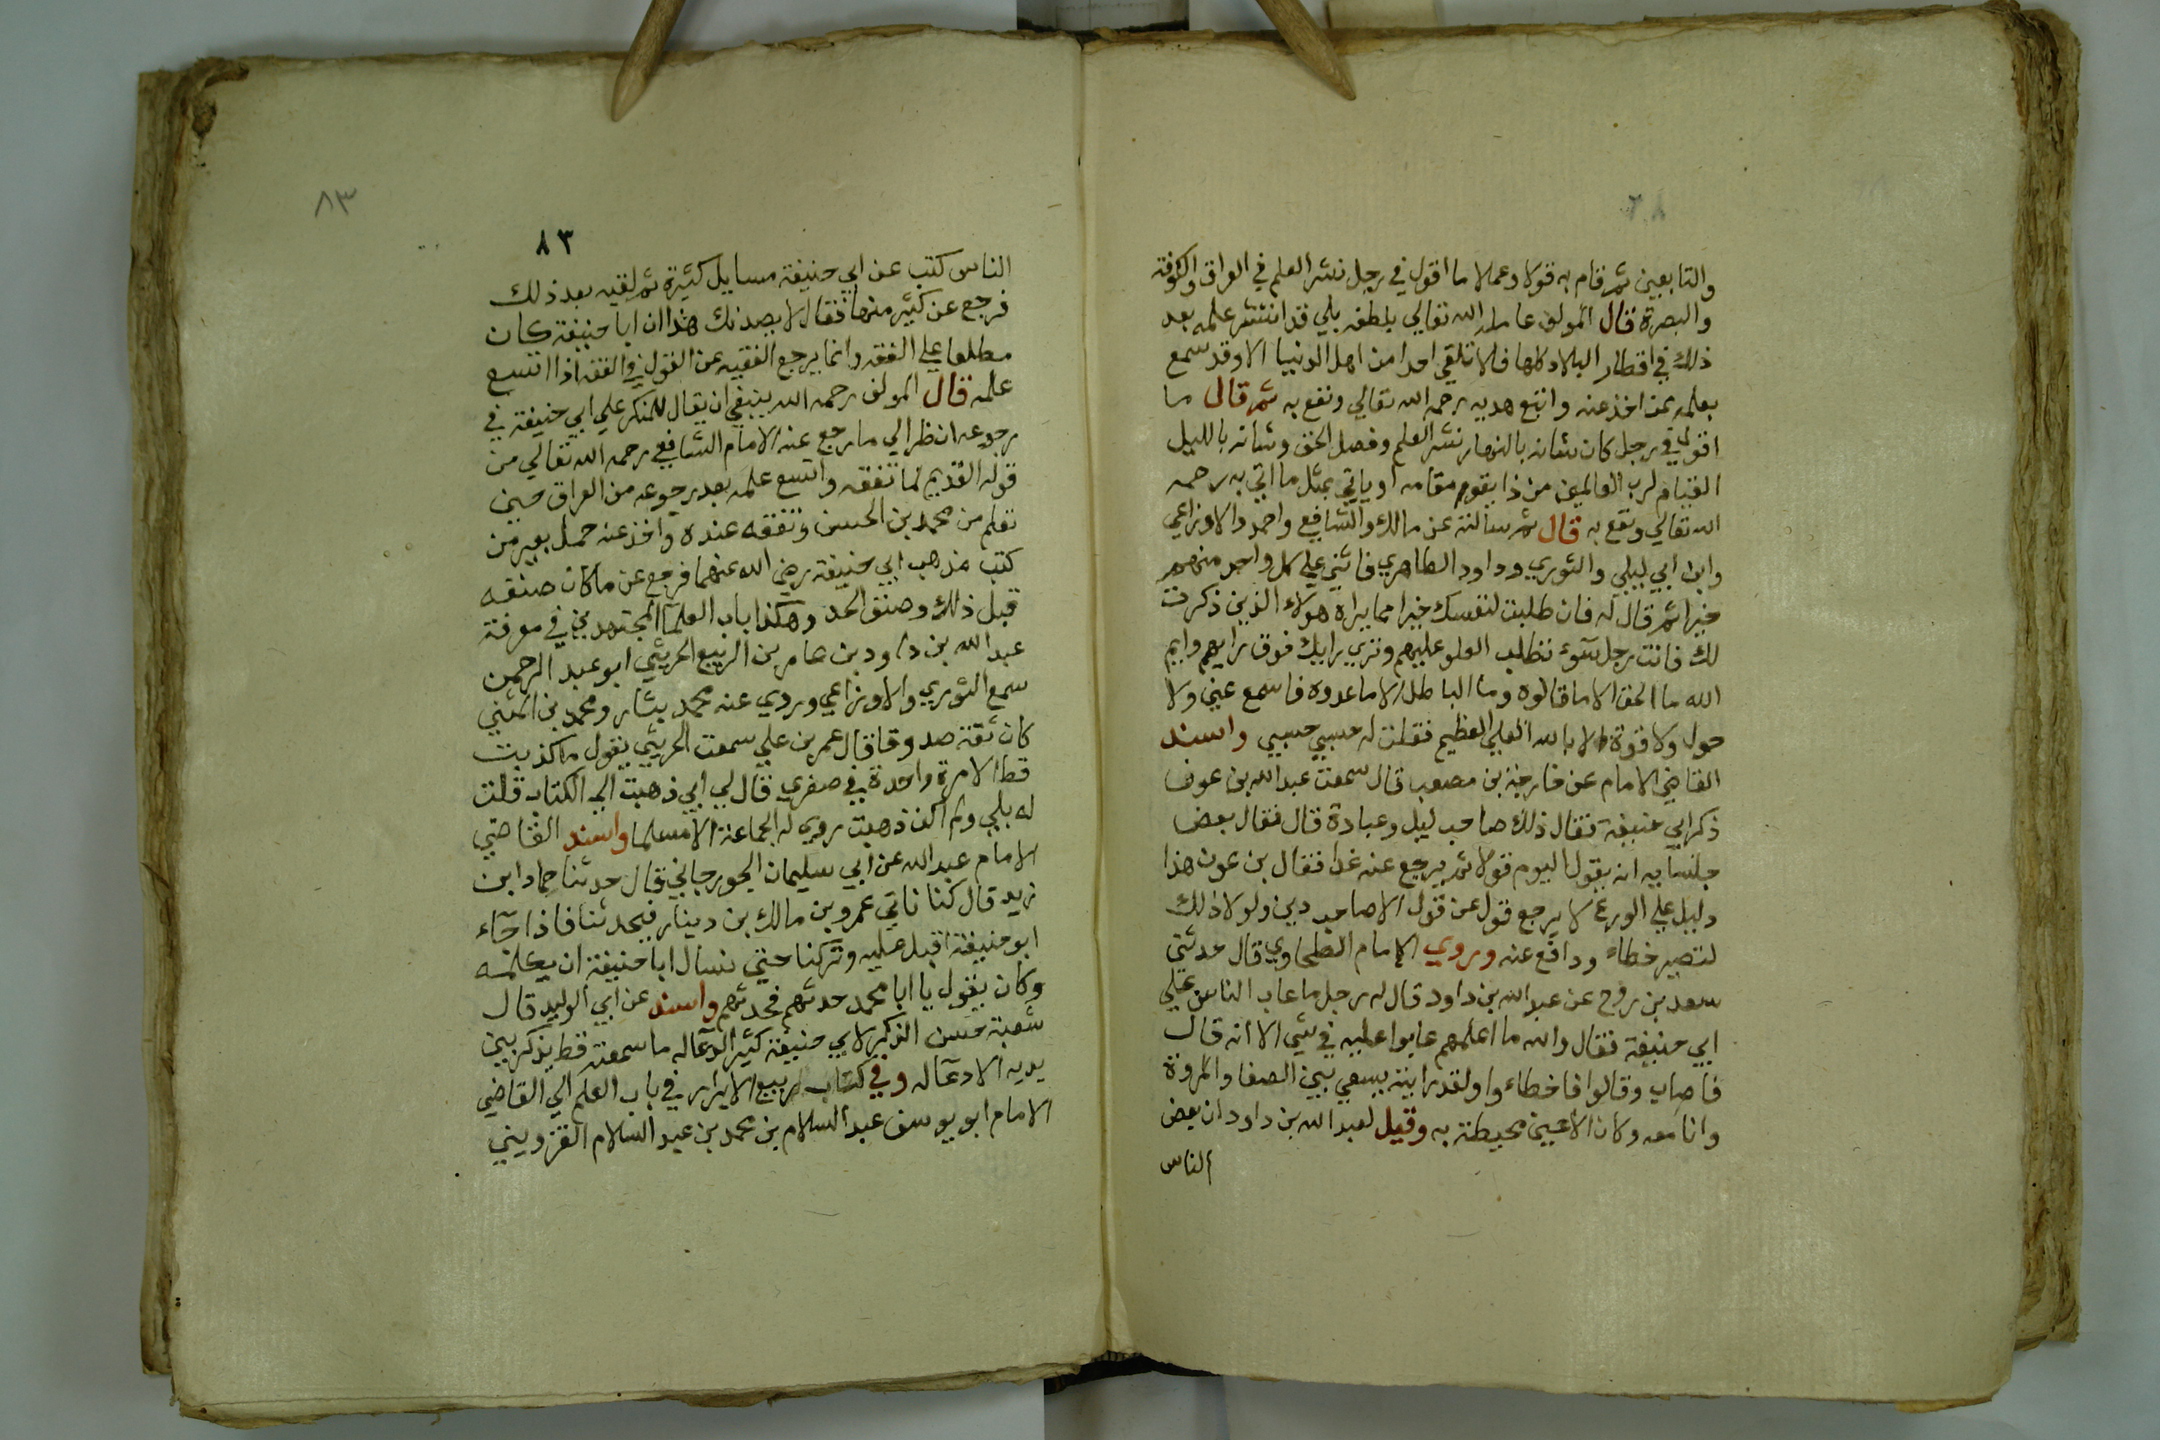 والتابعين ثم قام به قولا وعملا ما اقول في رجل نشر العلم في العراق والكوفة
والبصرة قال المولف عامله الله تعالي بلطفه بلي قد انتشر علمه بعد
ذلك في اقطار البلاد كلها فلا تلقي احدا من اهل الدنيا الا وقد سمع
بعلمه ممن اخذ عنه واتبع هديه رحمه الله تعالي ونفع به ثم قال ما
اقول في رجل كان شانه بالنهار نشر العلم وفصل الحق وشانه بالليل
القيام لرب العالمين من ذا يقوم مقامه او ياتي بمثل ما اتي به رحمه
الله تعالي ونفع به قال ثم سالته عن مالك والشافعي واحمد والاوزاعي
وابن ابي ليلي والثوري وداود الظاهري فاثني علي كل واحد منهم
خيرا ثم قال له فان طلبت لنفسك خيرا مما يراه هولاء الذين ذكرت
لك فانت رجل سوء تطلب العلو عليهم وتري رايك فوق رايهم وايم
الله ما الحق الا ما قالوه وما الباطل الا ما عدوه فاسمع عني ولا
حول ولا قوة الا بالله العلي العظيم فقلت له حسبي حسبي واسند
القاضي الامام عن خارجة بن مصعب قال سمعت عبد الله بن عون
ذكر ابي حنيفة فقال ذلك صاحب ليل وعبادة قال فقال بعض
جلسايه انه يقول اليوم قولا ثم يرجع عنه غدا فقال بن عون هذا
دليل علي الورع لا يرجع قول عن قول الا صاحب دين ولولا ذلك
لنصير خطاء ودافع عنه وروي الامام الطحاوي قال حدثني
سعد بن روح عن عبد الله بن داود قال له رجل ما عاب الناس علي
ابي حنيفة فقال والله ما اعلمهم عابوا عليه في شي الا انه قال
فاصاب وقالوا فاخطاءوا ولقد رايته يسعي بين الصفا والمروة
وانا معه وكان الاعين محيطة به وقيل لعبد الله بن داود ان بعض
الناس
٨٣
٨٣
الناس كتب عن ابي حنيفة مسايل كثيرة ثم لقيه بعد ذلك
فرجع عن كثير منها فقال لا يصدنك هذا ان ابا حنيفة كان
مطلعا علي الفقه وانما يرجع الفقيه عن القول في الفقه اذا اتسع
علمه قال المولف رحمه الله ينبغي ان يقال للمنكر علي ابي حنيفة في
رجوعه انظر الي ما رجع عنه الامام الشافعي رحمه الله تعالي من
قوله القديم لما تفقه واتسع علمه بعد رجوعه من العراق حين
تعلم من محمد بن الحسن وتفقه عنده واخذ عنه حمل بعير من
كتب مذهب ابي حنيفة رضي الله عنهما فرجع عن ما كان صنفه
قبل ذلك وصنف الحد وهكذا باب العلما المجتهدين في معرفة
عبد الله بن داود بن عامر بن الربيع الحريثي ابو عبد الرحمن
سمع الثوري والاوزاعي وروي عنه محمد بشار ومحمد بن المثني
كان ثقة صدوقا قال عمر بن علي سمعت الحريثي يقول ما كذبت
قط الا مرة واحدة في صغري قال لي ابي ذهبت الي الكتاب قلت
له بلي ولم اكن ذهبت روي له الجماعة الا مسلما واسند القاضي
الامام عبد الله عن ابي سليمان الجورجاني قال حدثنا حماد ابن
زيد قال كنا ناتي عمرو بن مالك بن دينار فيحدثنا فاذا جآء
ابو حنيفة اقبل عليه وتركنا حتي نسال ابا حنيفة ان يكلمه
وكان يقول يا ابا محمد حدثهم فحدثهم واسند عن ابي الوليد قال
شعبة حسن الذكر لابي حنيفة كثير الدعاله ما سمعته قط يذكر بين
يديه الا دعآ له وفي كتاب ربيع الابرار في باب العلم الي القاضي
الامام ابو يوسف عبد السلام بن محمد بن عبد السلام القزويني